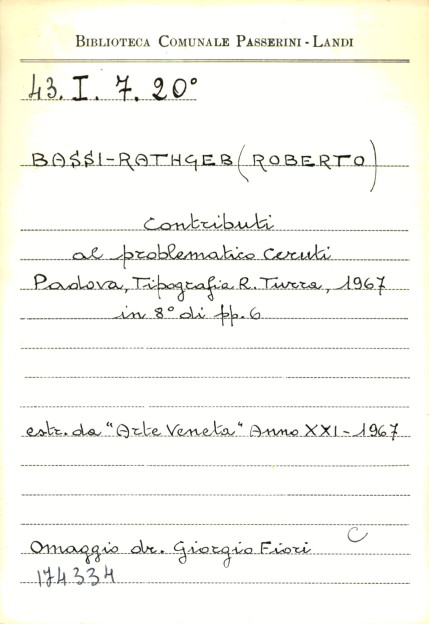 BIBLIOTECA COMUNALE PASSERINI - LANDI
43. I. 7. 20°
BASSI-RATHGEB (ROBERTO)
Contributi
al problematico Ceruti
Padova, Tipografia R. Turra, 1967
in 8° di pp. 6
estr. da "Arte Veneta" Anno XXI - 1967
C
Omaggio dr. Giorgio Fiori
174334